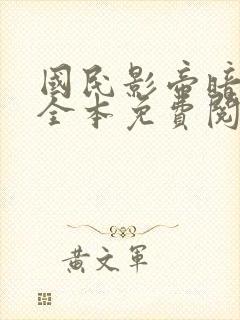 國民影帝暗
全本免費閱
黃文軍